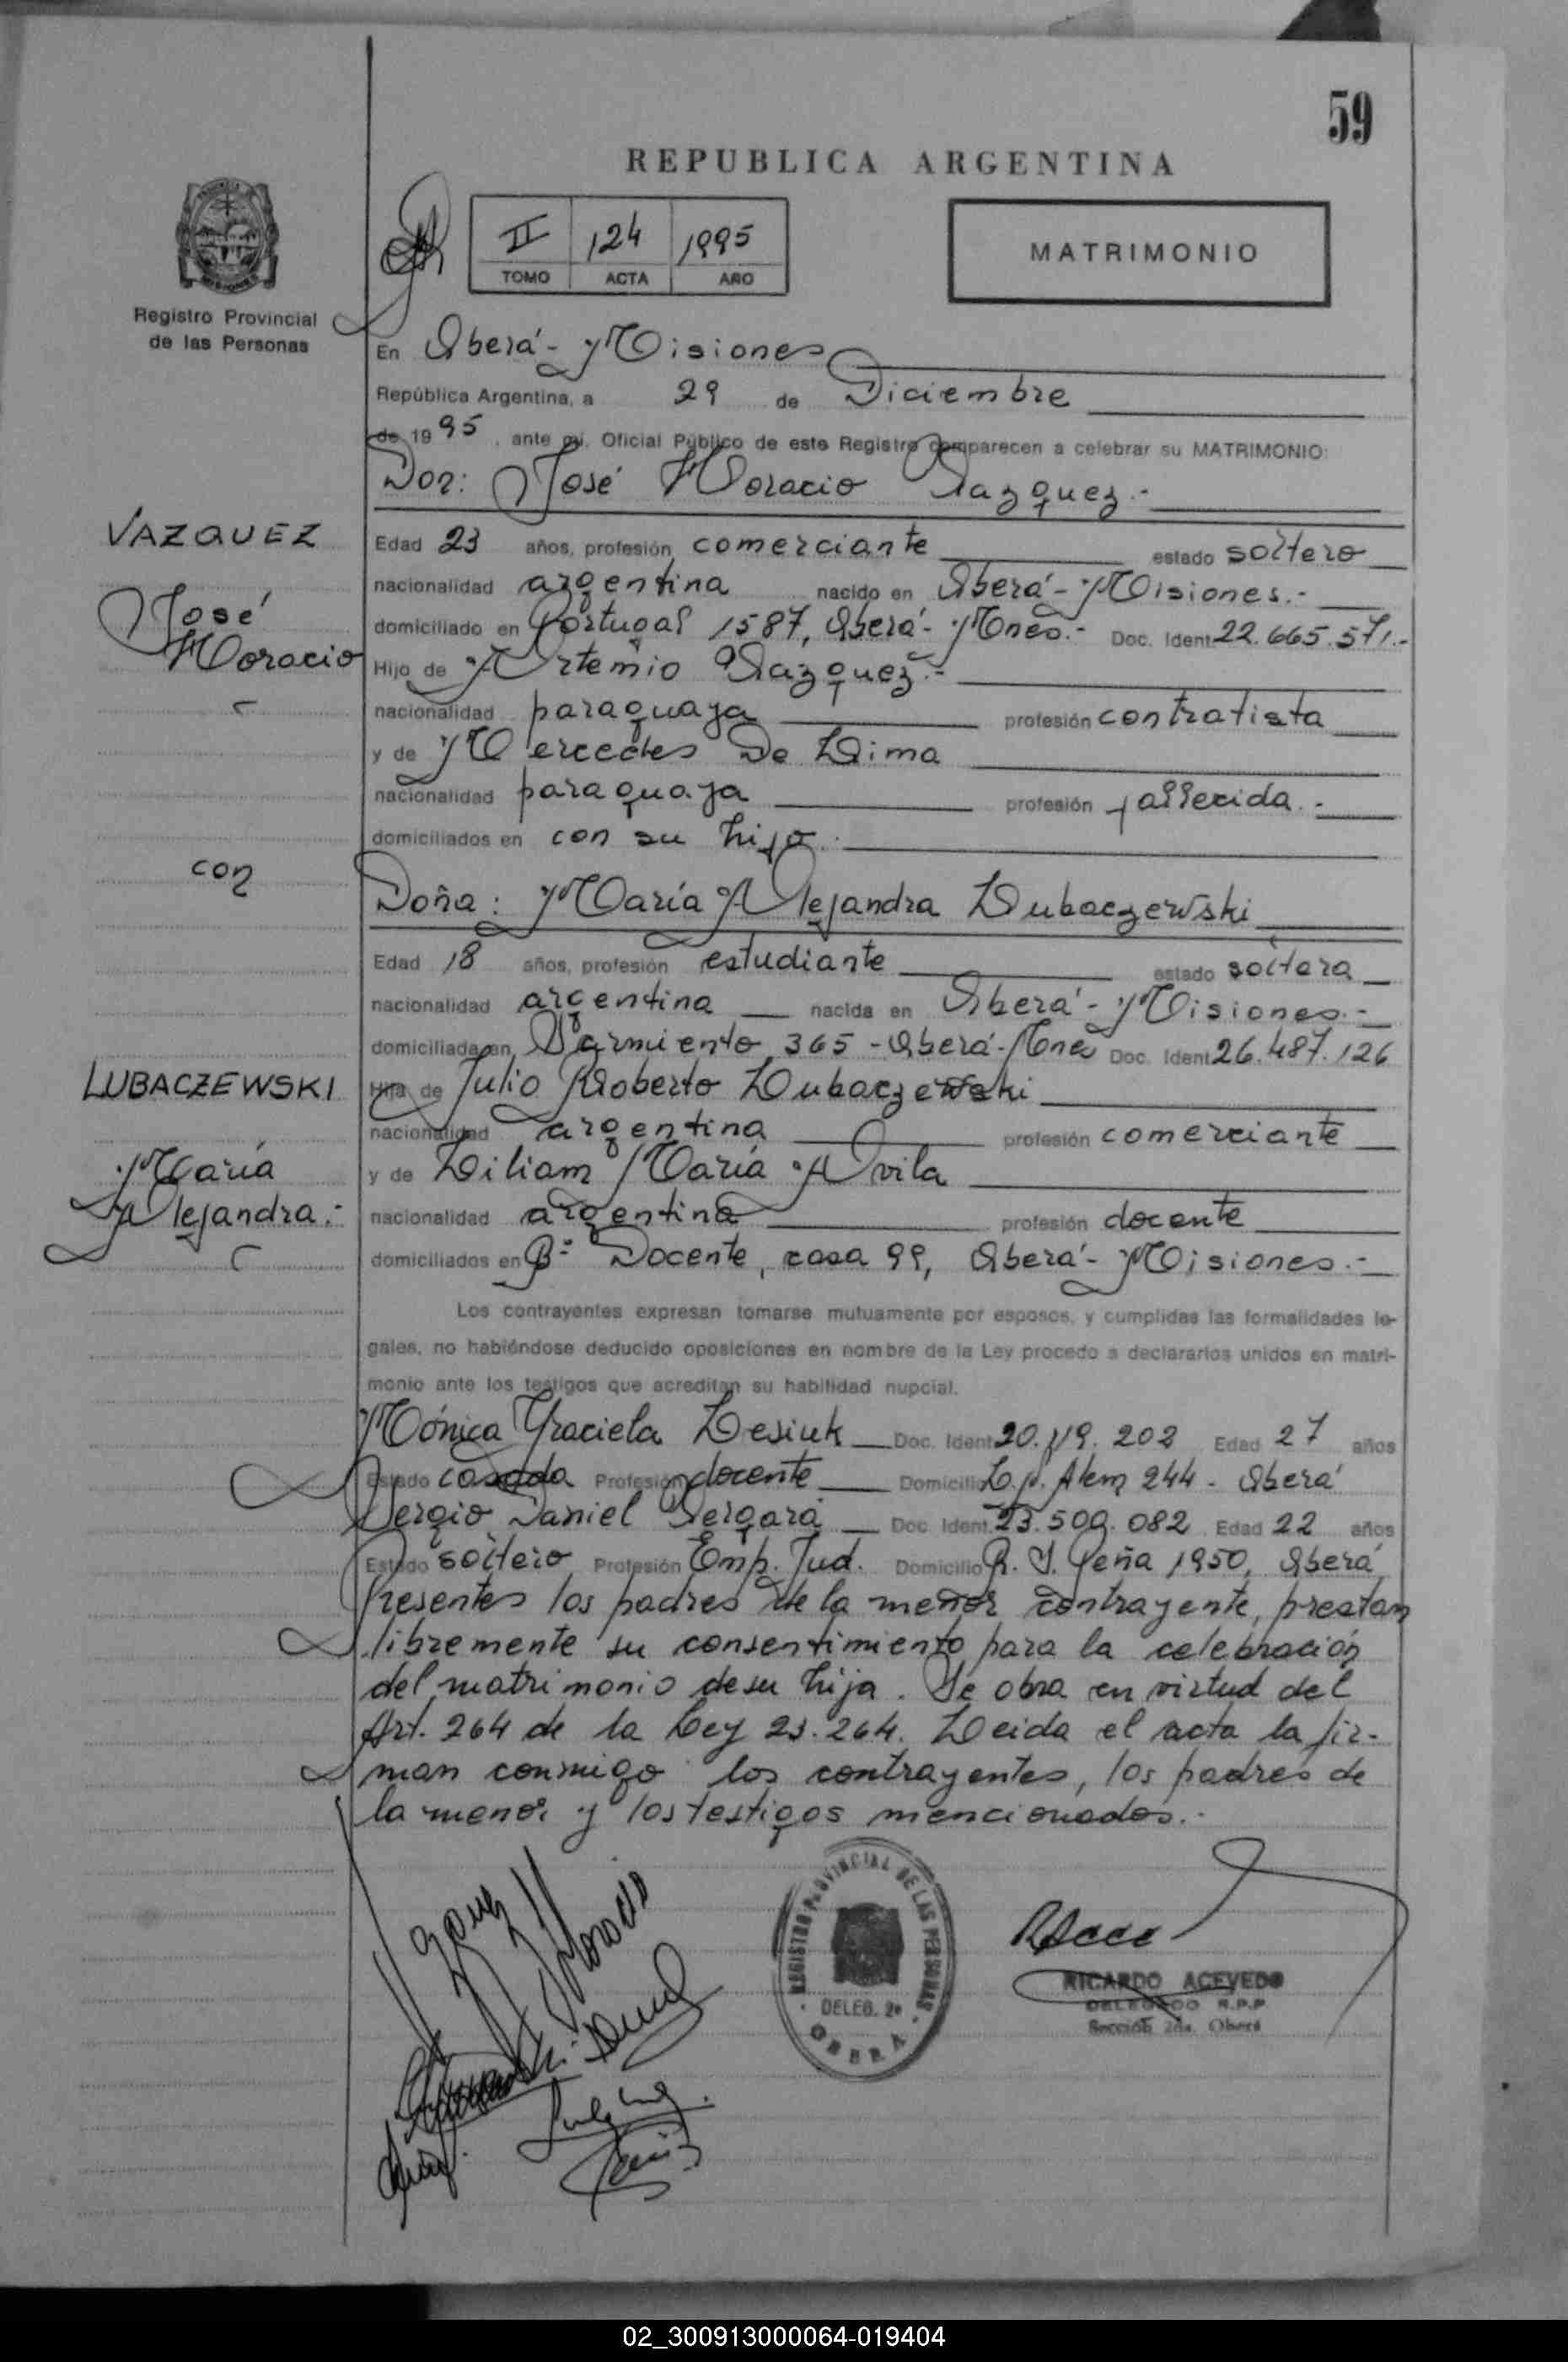 59
REPUBLICA ARGENTINA
II 124 1995
TOMO ACTA AÑO
MATRIMONIO
Registro Provincial
de las Personas
En Oberá - Misiones
República Argentina, a 29 de Diciembre
de 1995, ante mi, Oficial Público de este Registro comparecen a celebrar su MATRIMONIO:
Don: José Horacio Vazquez.-
VAZQUEZ
José
Horacio
Edad 23 años, profesión comerciante estado soltero
nacionalidad argentina nacido en Oberá - Misiones.-
domiciliado en Portugal 1587, Oberá - Mnes.- Doc. Ident. 22.665.571.-
Hijo de Artemio Vazquez.-
nacionalidad paraguaya profesión contratista
y de Mercedes De Lima
nacionalidad paraguaya profesión fallecida.-
domiciliados en con su hijo.
con
Doña: María Alejandra Lubaczewski
Edad 18 años, profesión estudiante estado soltera
nacionalidad argentina nacida en Oberá - Misiones.-
domiciliada en Sarmiento 365 - Oberá - Mnes Doc. Ident. 26.487.126
LUBACZEWSKI
María
Alejandra.-
Hija de Julio Roberto Lubaczewski
nacionalidad argentina profesión comerciante
y de Liliam María Avila
nacionalidad argentina profesión docente
domiciliados en Bº Docente, casa 99, Oberá - Misiones.-
Los contrayentes expresan tomarse mutuamente por esposos, y cumplidas las formalidades le-
gales, no habiéndose deducido oposiciones en nombre de la Ley procedo a declararlos unidos en matri-
monio ante los testigos que acreditan su habilidad nupcial.
Mónica Graciela Lesiuk Doc. Ident. 20.119.202 Edad 27 años
Estado casada Profesión docente Domicilio L.N. Alem 244 - Oberá
Sergio Daniel Vergara Doc. Ident. 23.509.082 Edad 22 años
Estado soltero Profesión Emp. Jud. Domicilio R. S. Peña 1950, Oberá
Presentes los padres de la menor contrayente, prestan
libremente su consentimiento para la celebración
del matrimonio de su hija. Se obra en virtud del
Art. 264 de la Ley 23.264. Leida el acta la fir-
man conmigo los contrayentes, los padres de
la menor y los testigos mencionados.-
REGISTRO PROVINCIAL DE LAS PERSONAS
DELEG. 2ª
OBERA
RICARDO ACEVEDO
DELEGADO R.P.P
Sección 2da. Oberá
02_300913000064-019404